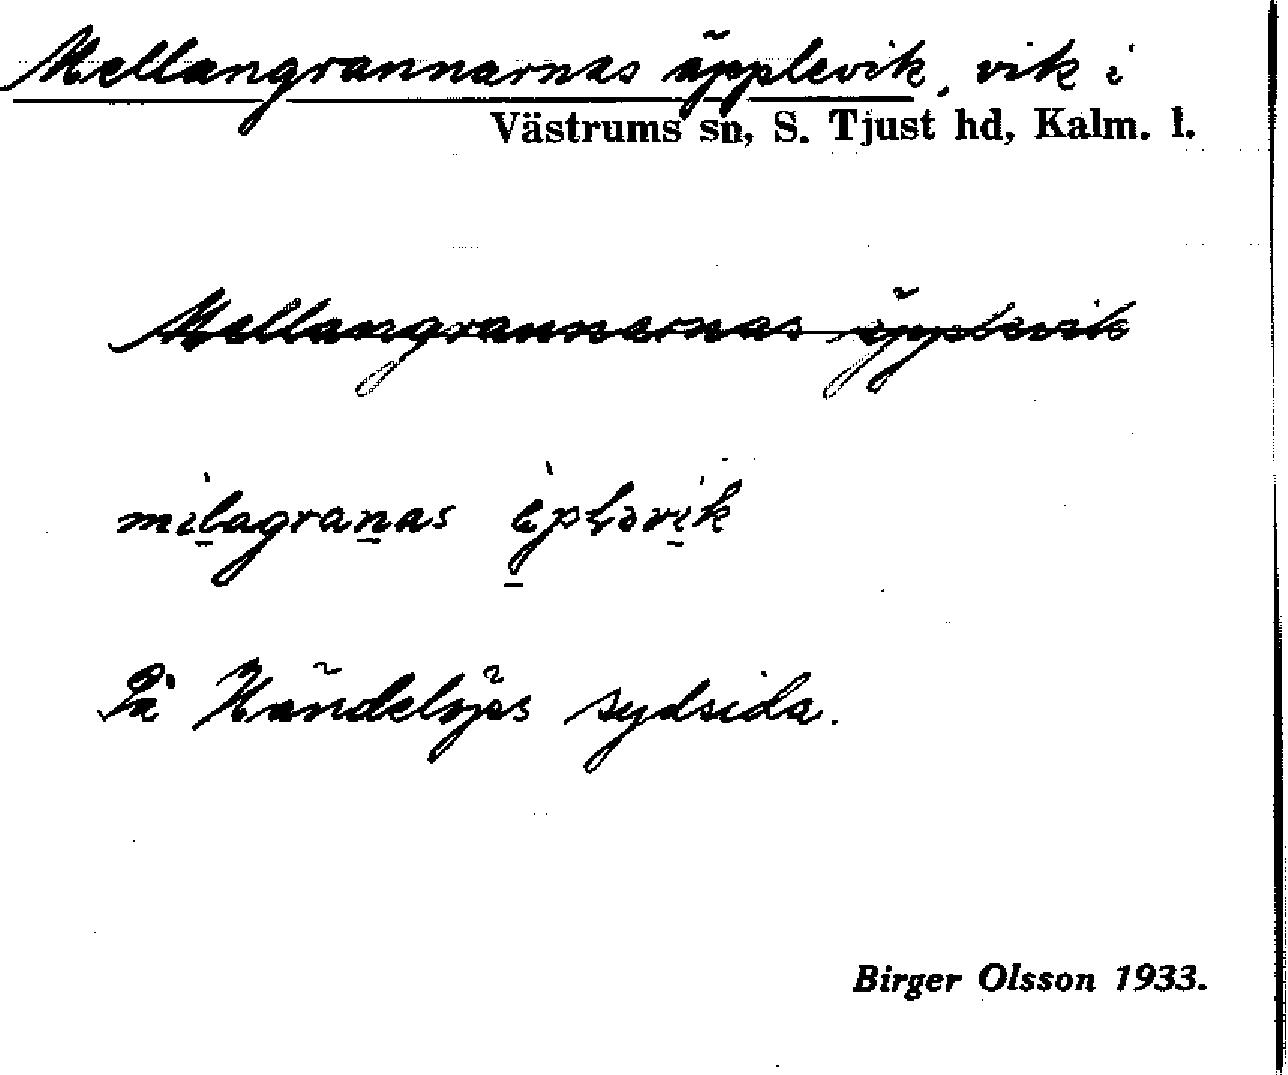 Mellangrannarnas äpplevik, vik i
Västrums sn, S. Tjust hd, Kalm. l.
Mellangrannarnas äpplevik
milagranas
På Händelöps sydsida.
Birger Olsson 1933.